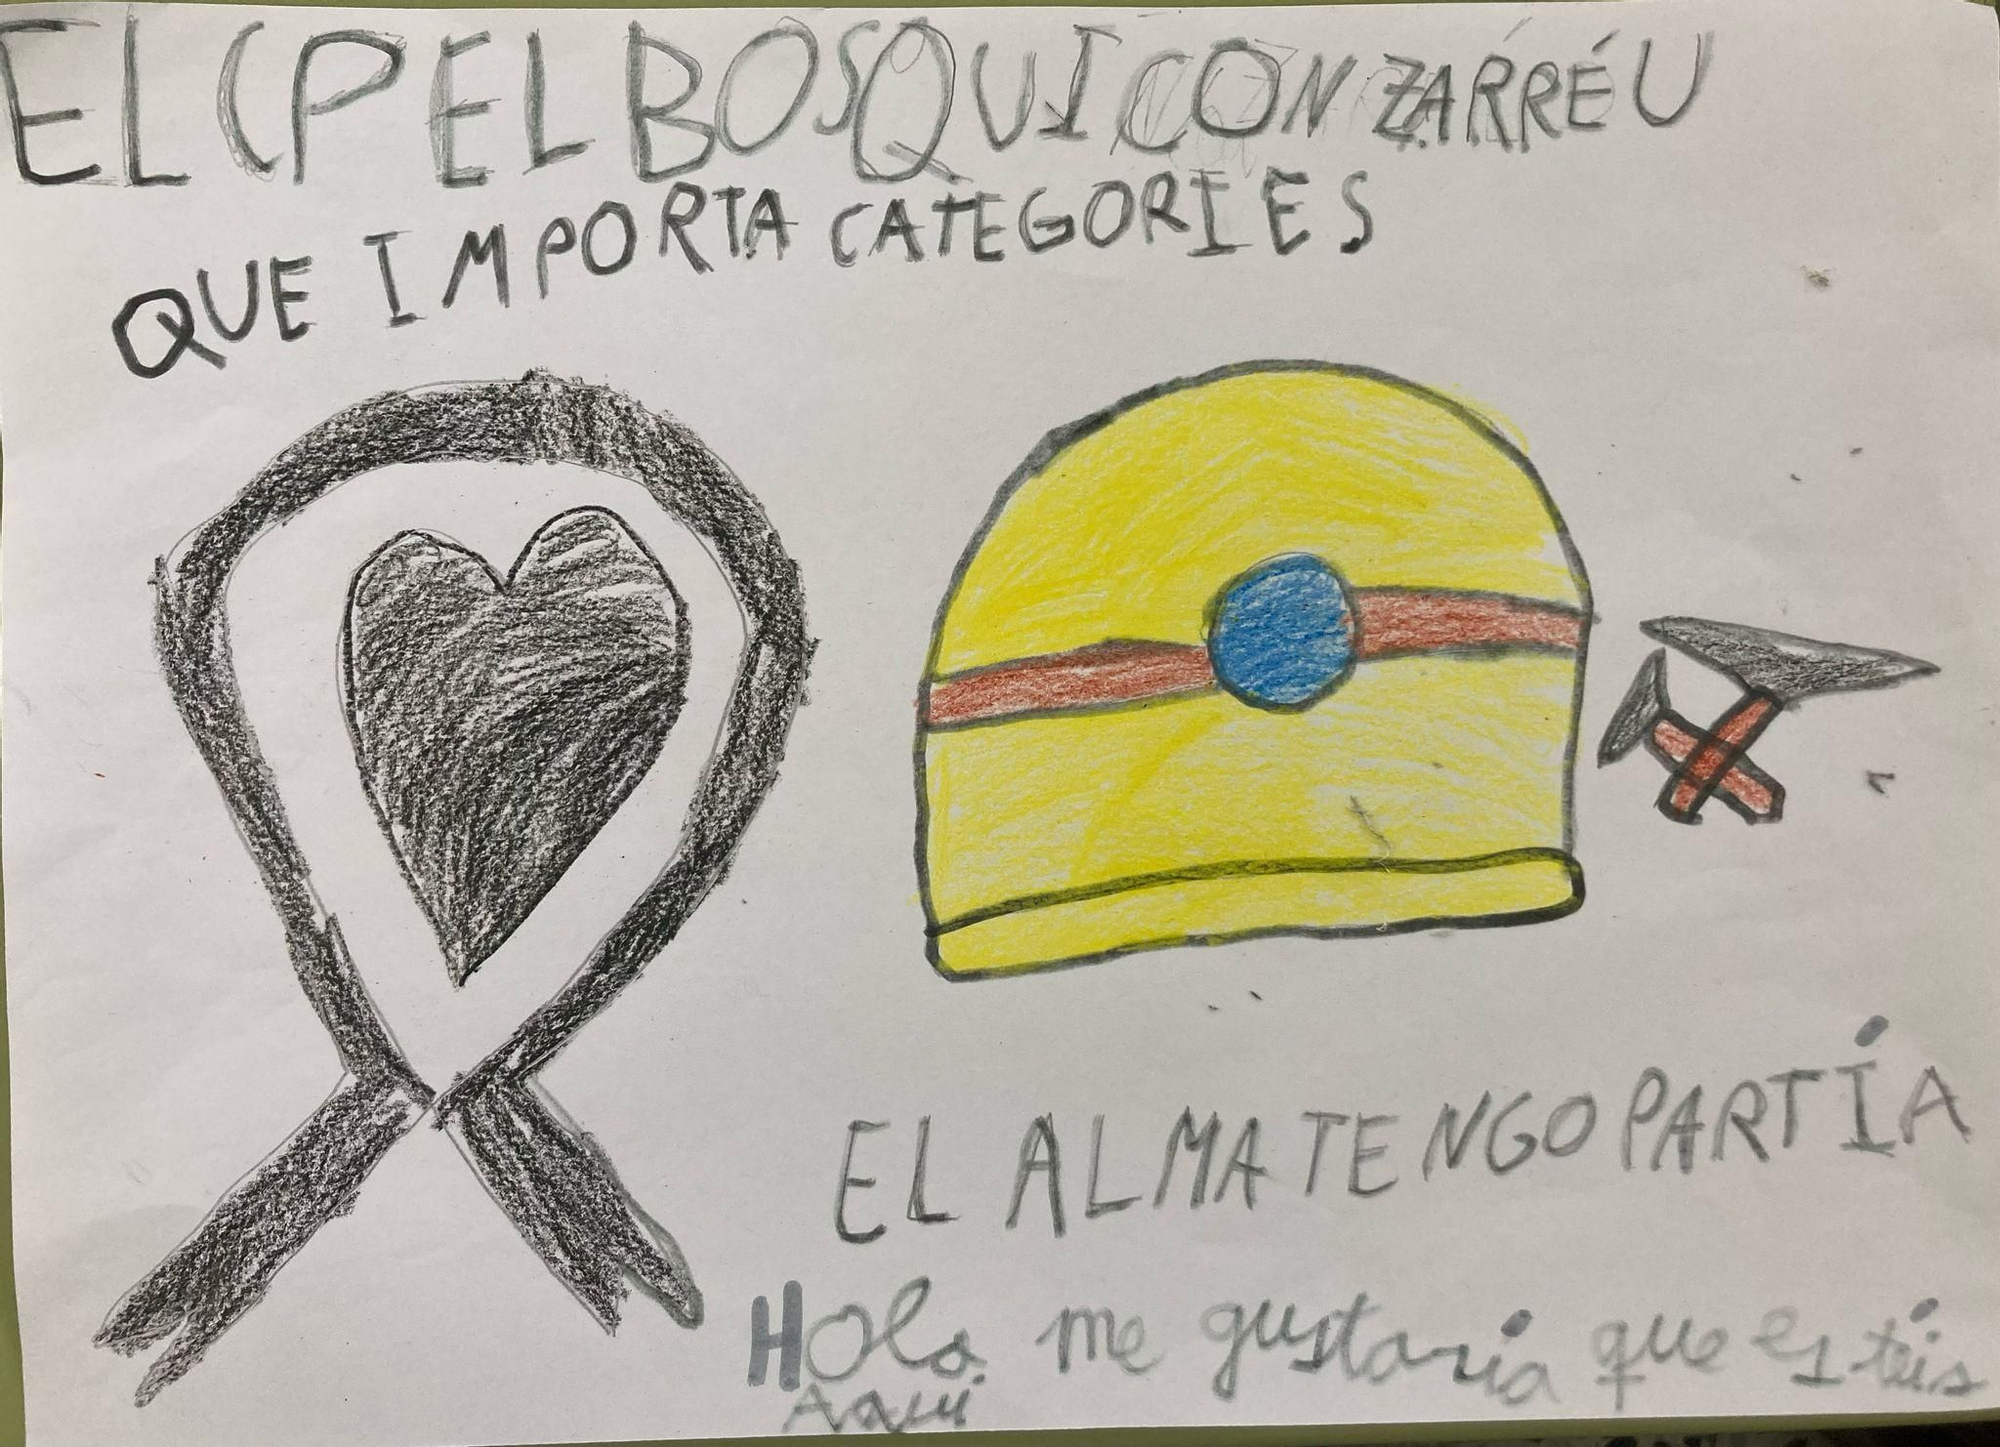 EL CP EL BOSQUI CON ZARRÉU
QUE IMPORTA CATEGORIES
EL ALMA TENGO PARTÍA
Hola me gustaria que estéis
Aqui